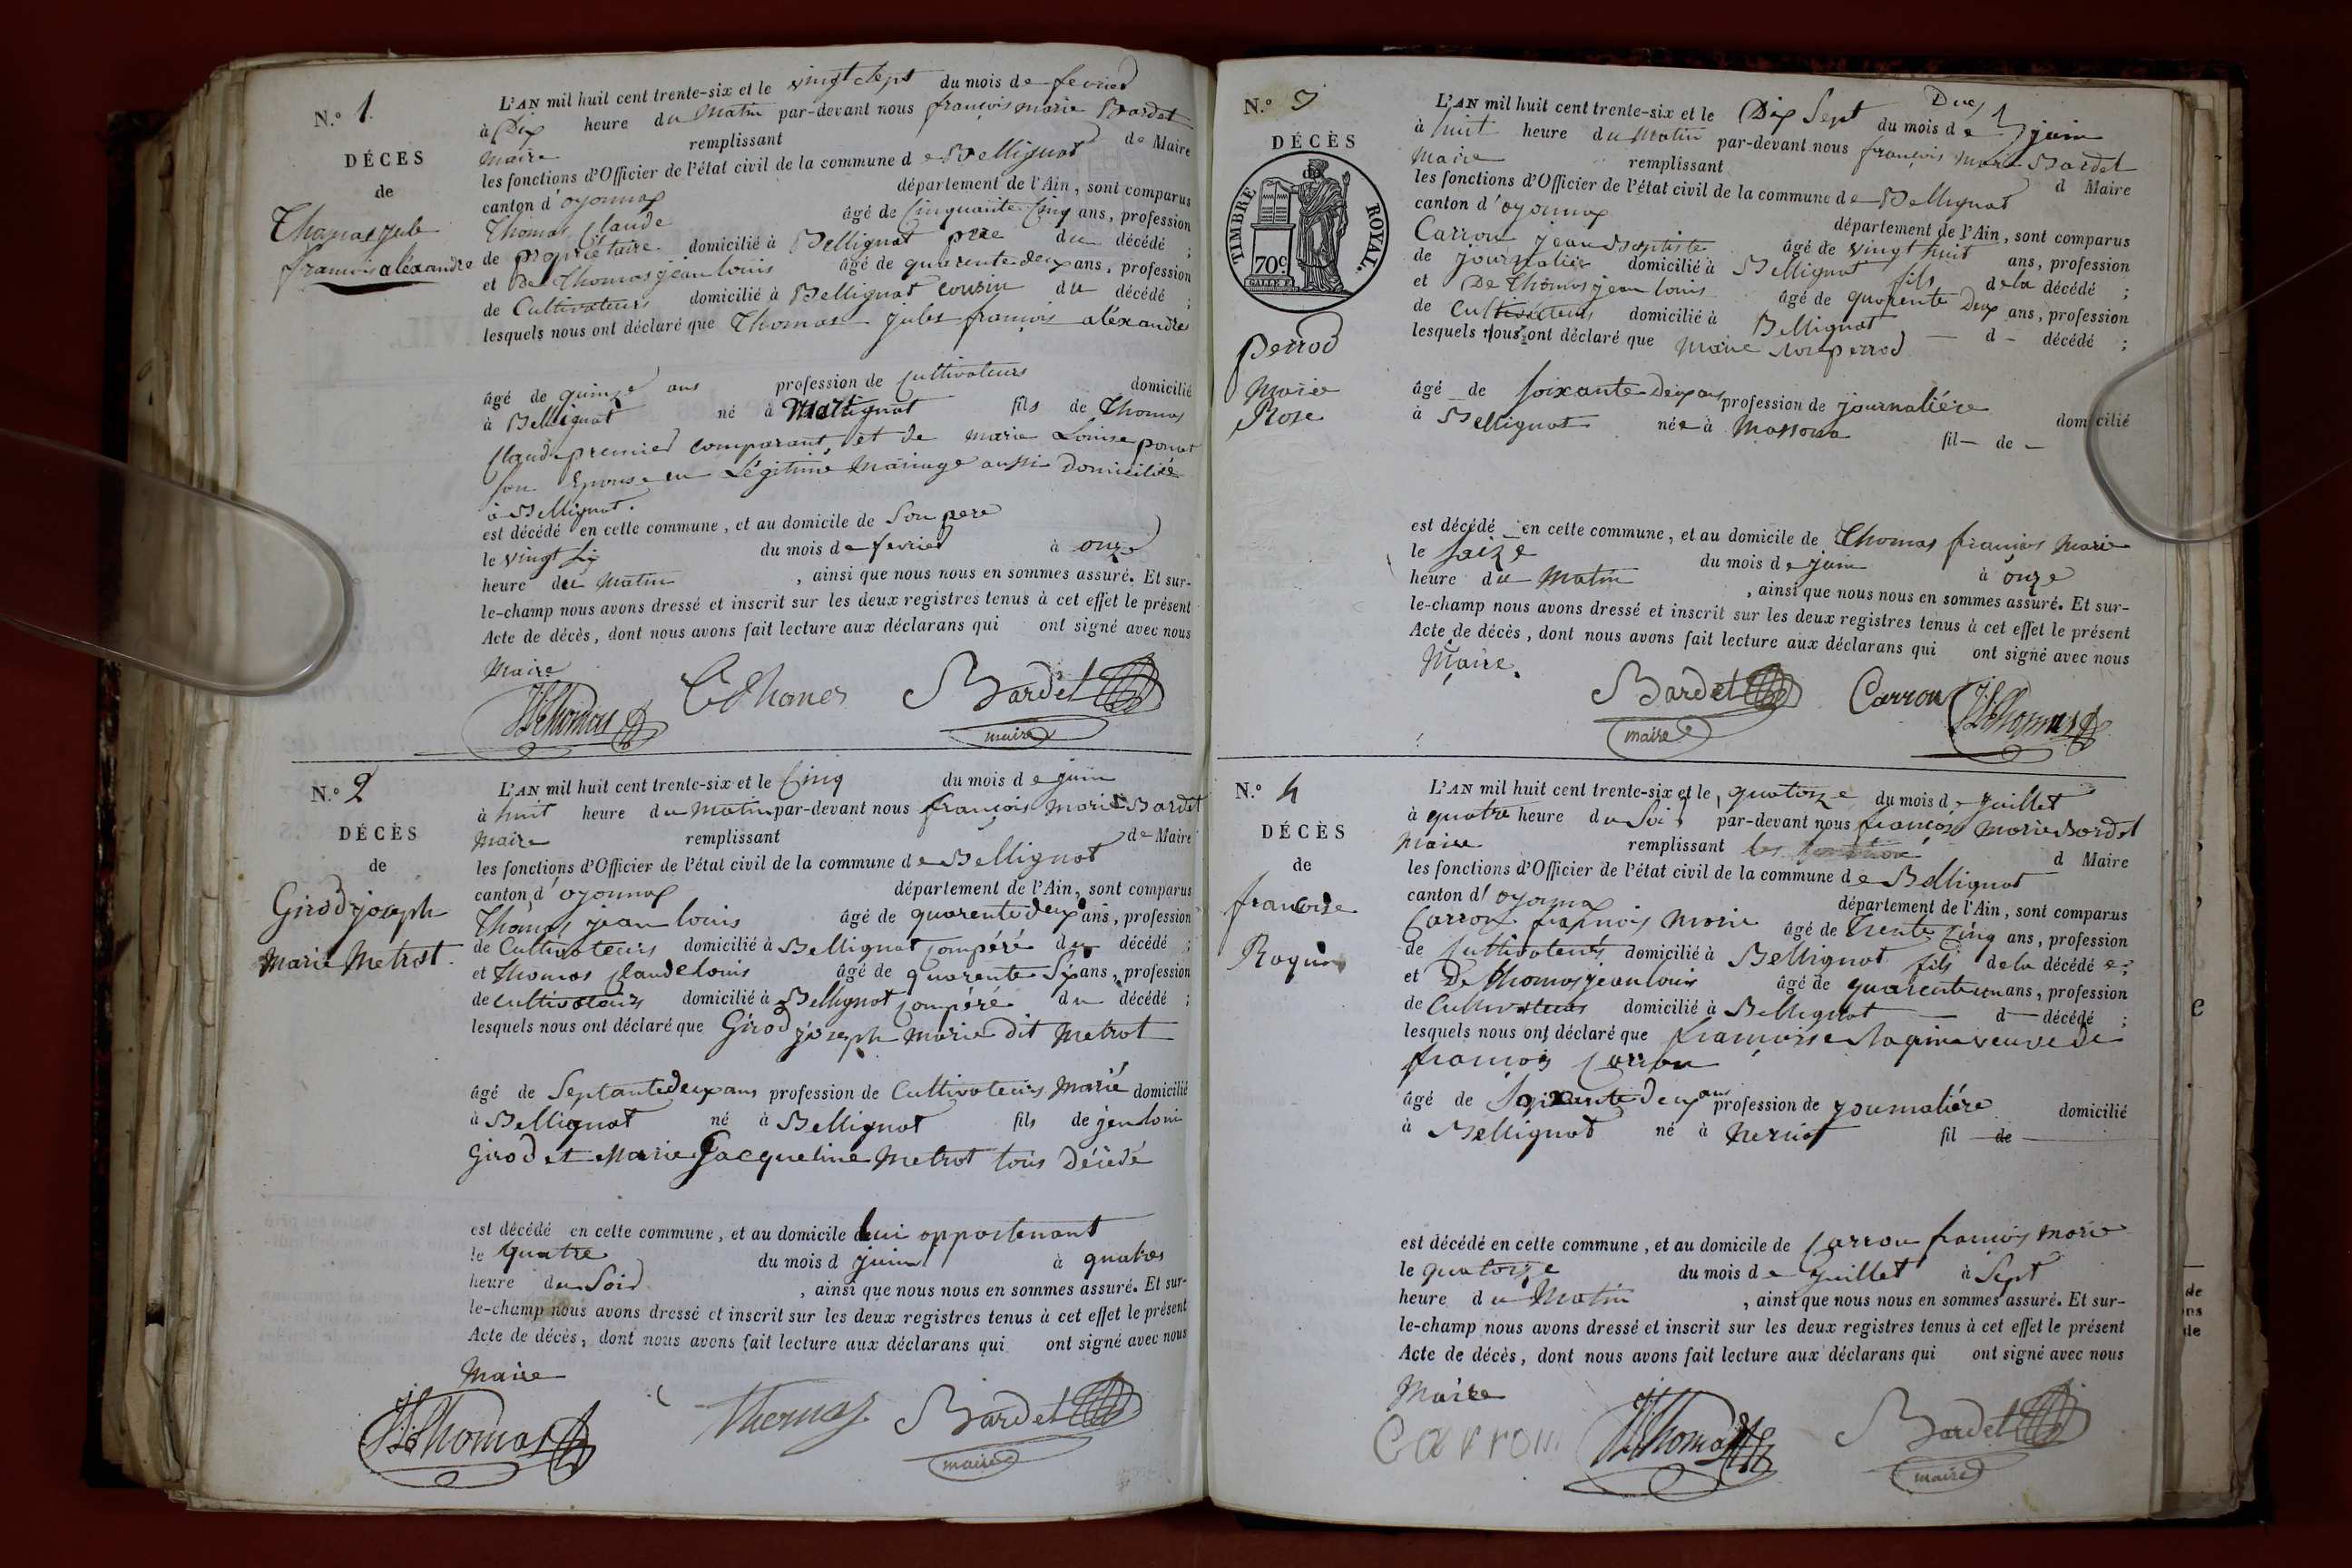 N.º 1.
DÉCES
de
Thomas jule
françois aléxandre
L'AN mil huit cent trente-six et le vingt sept du mois de fevrier
à Dix heure du Matin par-devant nous françois marie Bardet
Maire remplissant de Maire
les fonctions d'Officier de l'état civil de la commune de Bellignat
canton d'oyonnax département de l'Ain, sont comparus
Thomas Claude âgé de Cinquante Cinq ans, profession
de propriétaire domicilié à Bellignat père du décédé ;
et De Thomas jean louis âgé de quarente deux ans, profession
de Cultivateurs domicilié à Bellignat cousin du décédé ;
lesquels nous ont déclaré que Thomas Jules françois aléxandre
âgé de quinze ans profession de Cultivateurs domicilié
à Bellignat né à Martignat fils de Thomas
Claude premier comparant et de marie Louise ponet
son Epouse en Légitime Mariage aussi Domiciliée
à Bellignat.
est décédé en cette commune, et au domicile de Son pere
le vingt Six du mois de fevrier à onze
heure du Matin , ainsi que nous nous en sommes assuré. Et sur-
le-champ nous avons dressé et inscrit sur les deux registres tenus à cet effet le présent
Acte de décès, dont nous avons fait lecture aux déclarans qui ont signé avec nous
Maire
JLThomas Bardet
maire
N.º 2
DÉCÈS
de
Girod joseph
Marie Metrot.
L'AN mil huit cent trente-six et le Cinq du mois de juin
à huit heure du Matin par-devant nous françois Marie Bardet
Maire remplissant de Maire
les fonctions d'Officier de l'état civil de la commune de Bellignat
canton d'oyonnax département de l'Ain, sont comparus
Thomas jean louis âgé de quarente deux ans, profession
de Cultivateurs domicilié à Bellignat Compéré du décédé ;
et Thomas Claude louis âgé de quarente Six ans, profession
de cultivateurs domicilié à Bellignat Compéré du décédé ;
lesquels nous ont déclaré que Girod joseph Marie dit Metrot
âgé de Septante deux ans profession de Cultivateurs Marié domicilié
à Bellignat né à Bellignat fils de jean louis
Girod et Marie Jacqueline Metrot tous Décédé
est décédé en cette commune, et au domicile lui appartenant
le quatre du mois d juin à quatres
heure du Soir , ainsi que nous nous en sommes assuré. Et sur-
le-champ nous avons dressé et inscrit sur les deux registres tenus à cet effet le présent
Acte de décès, dont nous avons fait lecture aux déclarans qui ont signé avec nous
Maire
JLThomas Thomas Bardet
maire
N.º 3
DÉCÈS
TIMBRE ROYAL.
70c.
perrod
Marie
Rose
L'AN mil huit cent trente-six et le Dix Sept du mois de juin
à huit heure du Matin par-devant nous françois Marie Bardet
Maire remplissant d Maire
les fonctions d'Officier de l'état civil de la commune de Bellignat
canton d'oyonnax département de l'Ain, sont comparus
Carron jean Baptiste âgé de vingt huit ans, profession
de journalier domicilié à Bellignat fils dela décédé ;
et De Thomas jean louis âgé de quarente Deux ans, profession
de Cultivateurs domicilié à Bellignat — d — décédé ;
lesquels nous ont déclaré que Marie Rose perrod
âgé de Soixante Deux ans profession de journaliére domicilié
à Bellignat née à fil — de —
est décédé en cette commune, et au domicile de Thomas françois Marie
le Saize du mois de juin à onze
heure du Matin , ainsi que nous nous en sommes assuré. Et sur-
le-champ nous avons dressé et inscrit sur les deux registres tenus à cet effet le présent
Acte de décès, dont nous avons fait lecture aux déclarans qui ont signé avec nous
Maire.
Bardet Carron JLThomas
maire
N.º 4
DÉCÈS
de
francoise
L'AN mil huit cent trente-six et le quatorze du mois de juillet
à quatre heure du Soir par-devant nous françois Marie Bardet
Maire remplissant d Maire
les fonctions d'Officier de l'état civil de la commune de Bellignat
canton d'oyonnax département de l'Ain, sont comparus
Carron françois Marie âgé de Trente Cinq ans, profession
de Cultivateurs domicilié à Bellignat fils dela décédé e ;
et De thomas jean louis âgé de quarente un ans, profession
de Cultivateurs domicilié à Bellignat — d — décédé ;
lesquels nous ont déclaré que françoisse veuve de
françois Carron
âgé de Soixante Deux ans profession de journaliére domicilié
à Bellignat né à fil — de —
est décédé en cette commune, et au domicile de Carron françois Marie
le quatorze du mois de juillet à Sept
heure du Matin , ainsi que nous nous en sommes assuré. Et sur-
le-champ nous avons dressé et inscrit sur les deux registres tenus à cet effet le présent
Acte de décès, dont nous avons fait lecture aux déclarans qui ont signé avec nous
Maire
Carron JLThomas Bardet
maire